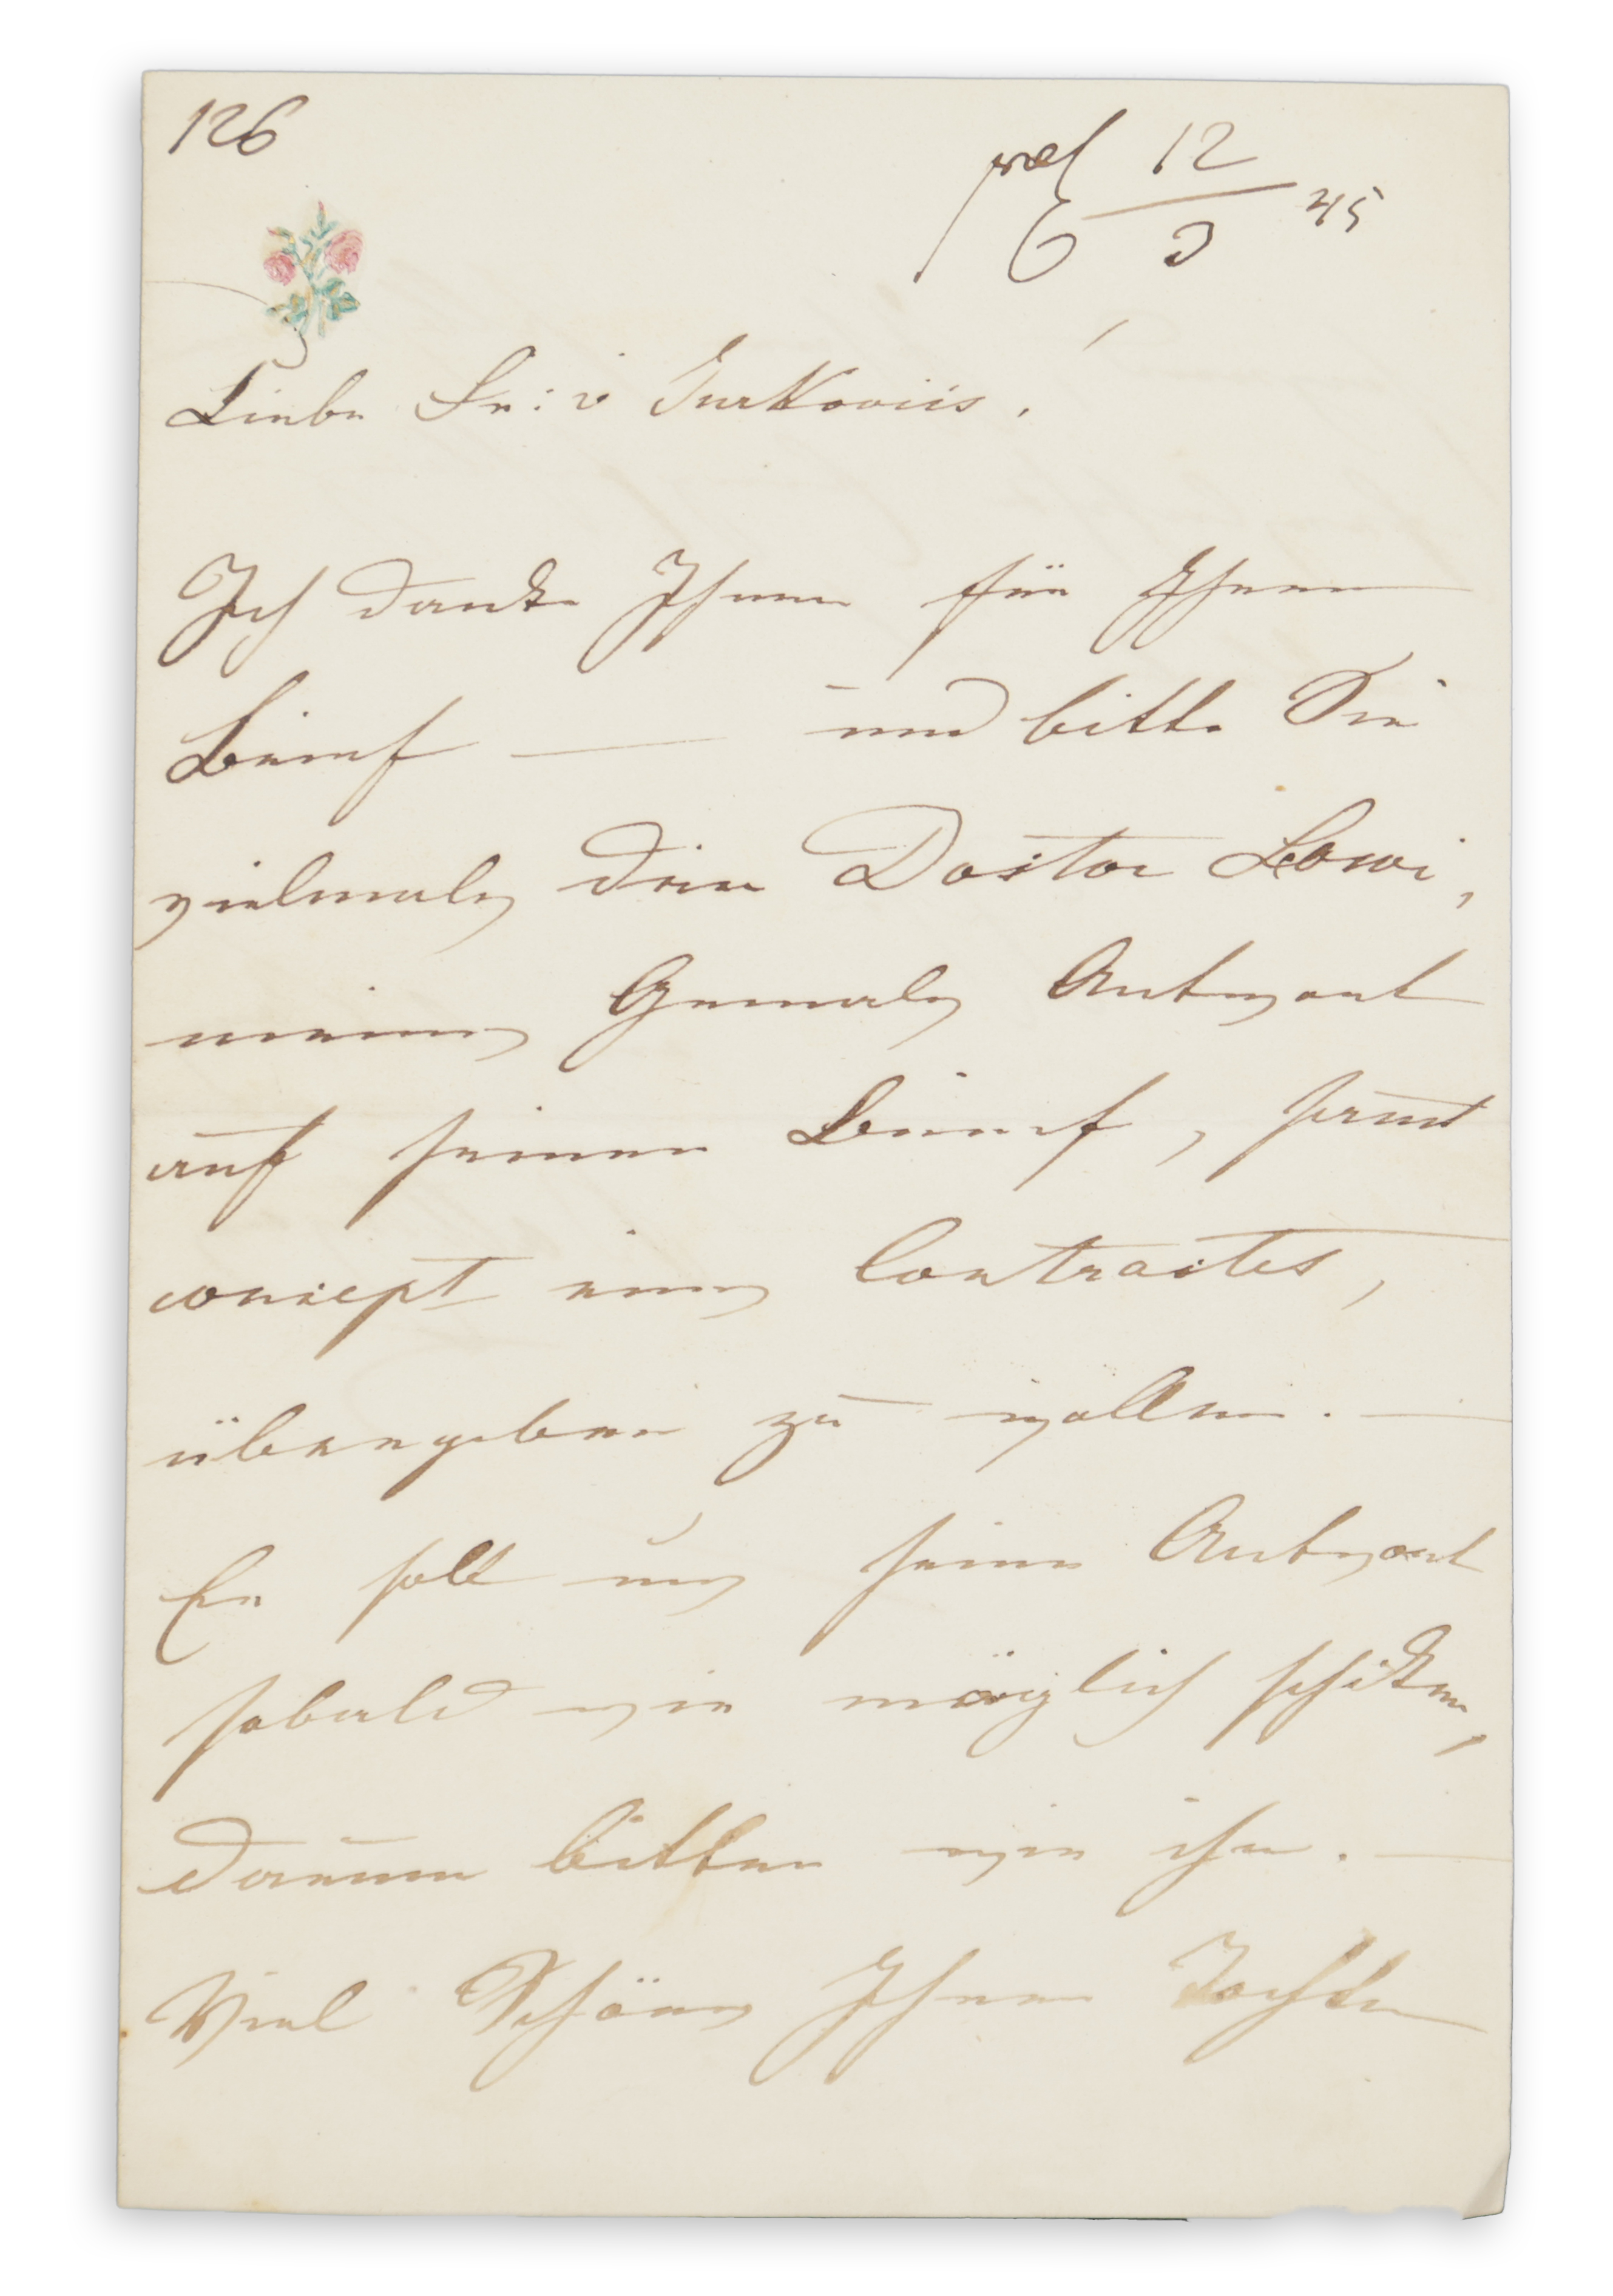 126
12
3 45
Liebe Fr: v Turkoviis.
Ich danke Ihnen für Ihren
Brief — und bitte Sie
vielmals dem Doctor Löwi,
meines Gemals Antwort
auf seinen Brief, samt
concept eines Contractes,
übergeben zu wollen. —
Er soll uns seine Antwort
sobald wie möglich schiken,
darum bitten wir ihn. —
Viel Schönes Ihren Tochter